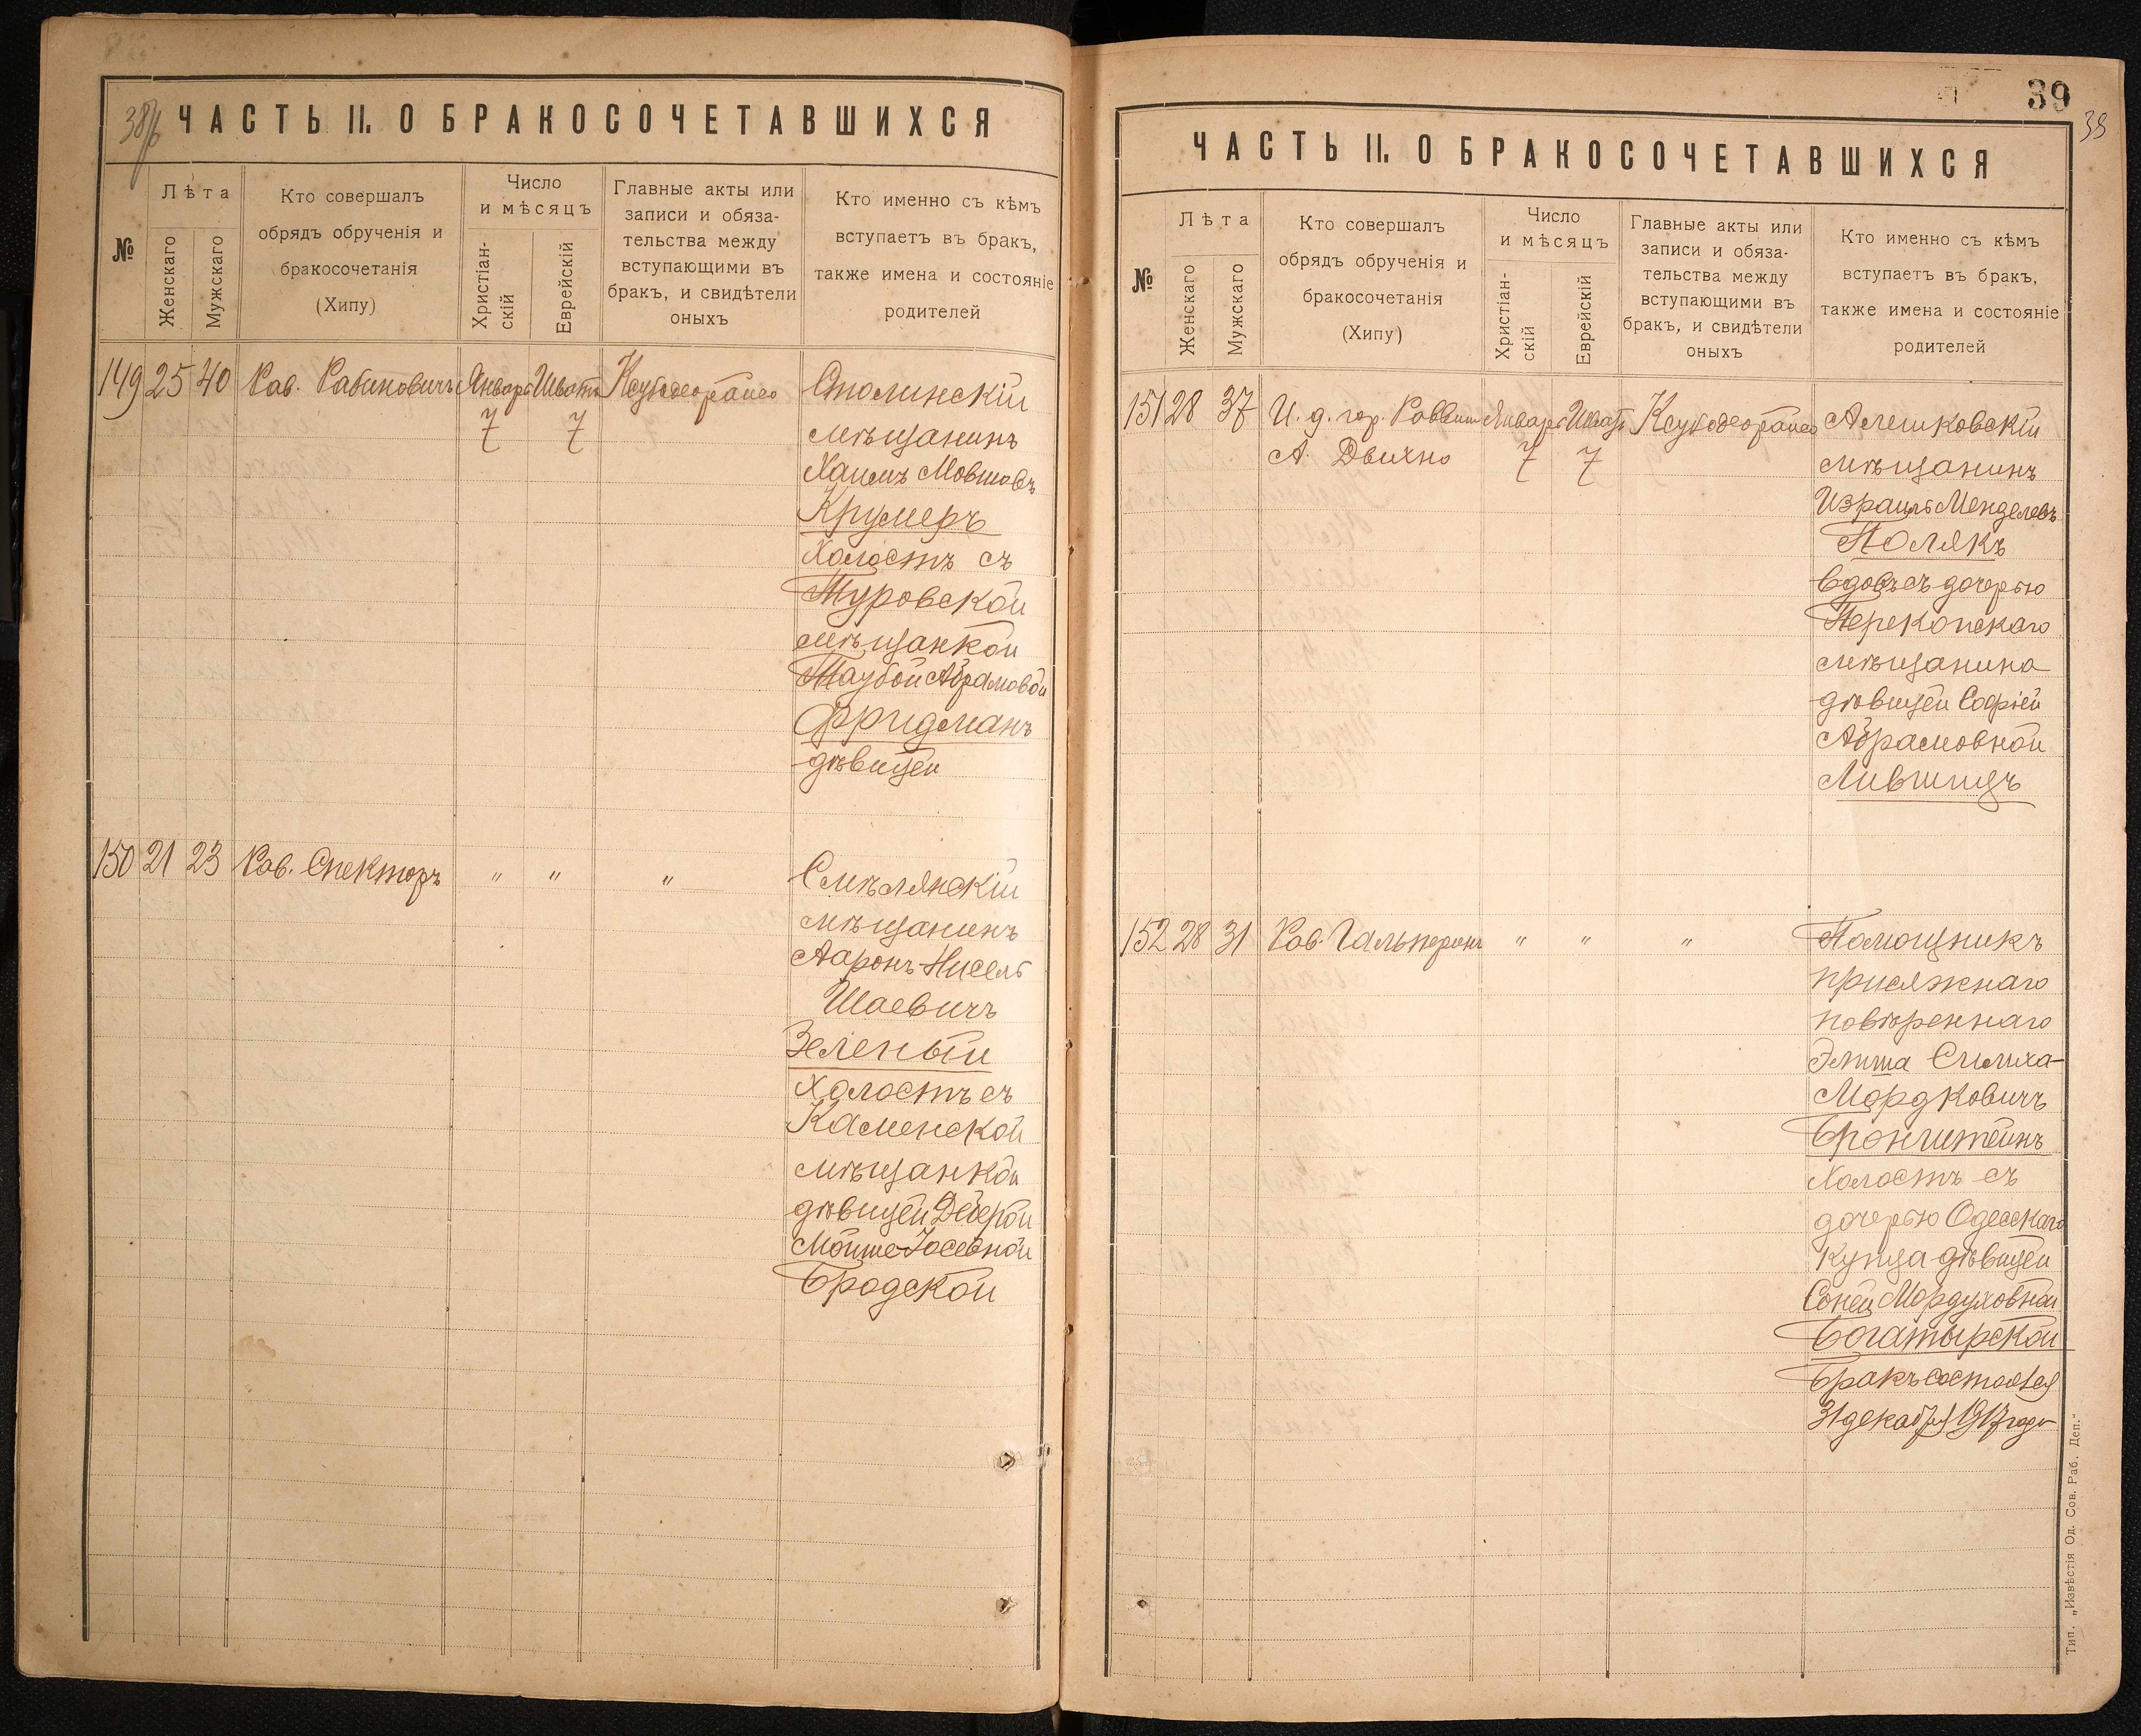 38об
ЧАСТЬ II. О БРАКОСОЧЕТАВШИХСЯ
№
Лѣта
Женскаго
Мужскаго
Кто совершалъ
обрядъ обрученія и
бракосочетанія
(Хипу)
Число
и мѣсяцъ
Христіан-
скій
Еврейскій
Главные акты или
записи и обяза-
тельства между
вступающими въ
бракъ, и свидѣтели
оныхъ
Кто именно съ кѣмъ
вступаетъ въ бракъ,
также имена и состояніе
родителей
149 25 40 Рав. Рабиновичъ Январь Шватъ Ксубодеорайсо Столинскій
7 7 мѣщанинъ
Хаимъ Мовшовъ
Крумеръ
холостъ съ
Туровской
мѣщанкой
Таубой Абрамовой
Фридманъ
дѣвицей
150 21 23 Рав. Спекторъ " " " Смѣлянскій
мѣщанинъ
Ааронъ-Нисель
Шаевичъ
Зеленый
холостъ съ
Каменской
мѣщанкой
дѣвицей Двейрой
Мойше-Іосевной
Бродской
39
39
ЧАСТЬ II. О БРАКОСОЧЕТАВШИХСЯ
№
Лѣта
Женскаго
Мужскаго
Кто совершалъ
обрядъ обрученія и
бракосочетанія
(Хипу)
Число
и мѣсяцъ
Христіан-
скій
Еврейскій
Главные акты или
записи и обяза-
тельства между
вступающими въ
бракъ, и свидѣтели
оныхъ
Кто именно съ кѣмъ
вступаетъ въ бракъ,
также имена и состояніе
родителей
151 28 37 И. д. гор. Раввина Январь Шватъ Ксубодеорайсо Алешковскій
А. Двихно 7 7 мѣщанинъ
Израиль Менделевъ
Полякъ
вдовъ съ дочерью
Перекопскаго
мѣщанина
дѣвицей Софіей
Абрамовной
Лившицъ
152 28 31 Рав. Гальперинъ " " " Помощникъ
присяжнаго
повѣреннаго
Симха-
Мордковичъ
Бронштейнъ
холостъ съ
дочерью Одесскаго
купца дѣвицей
Соней Мордуховной
Богатырской
Бракъ состоялся
31 декабря 1917 года
Тип. „Извѣстія Од. Сов. Раб. Деп."